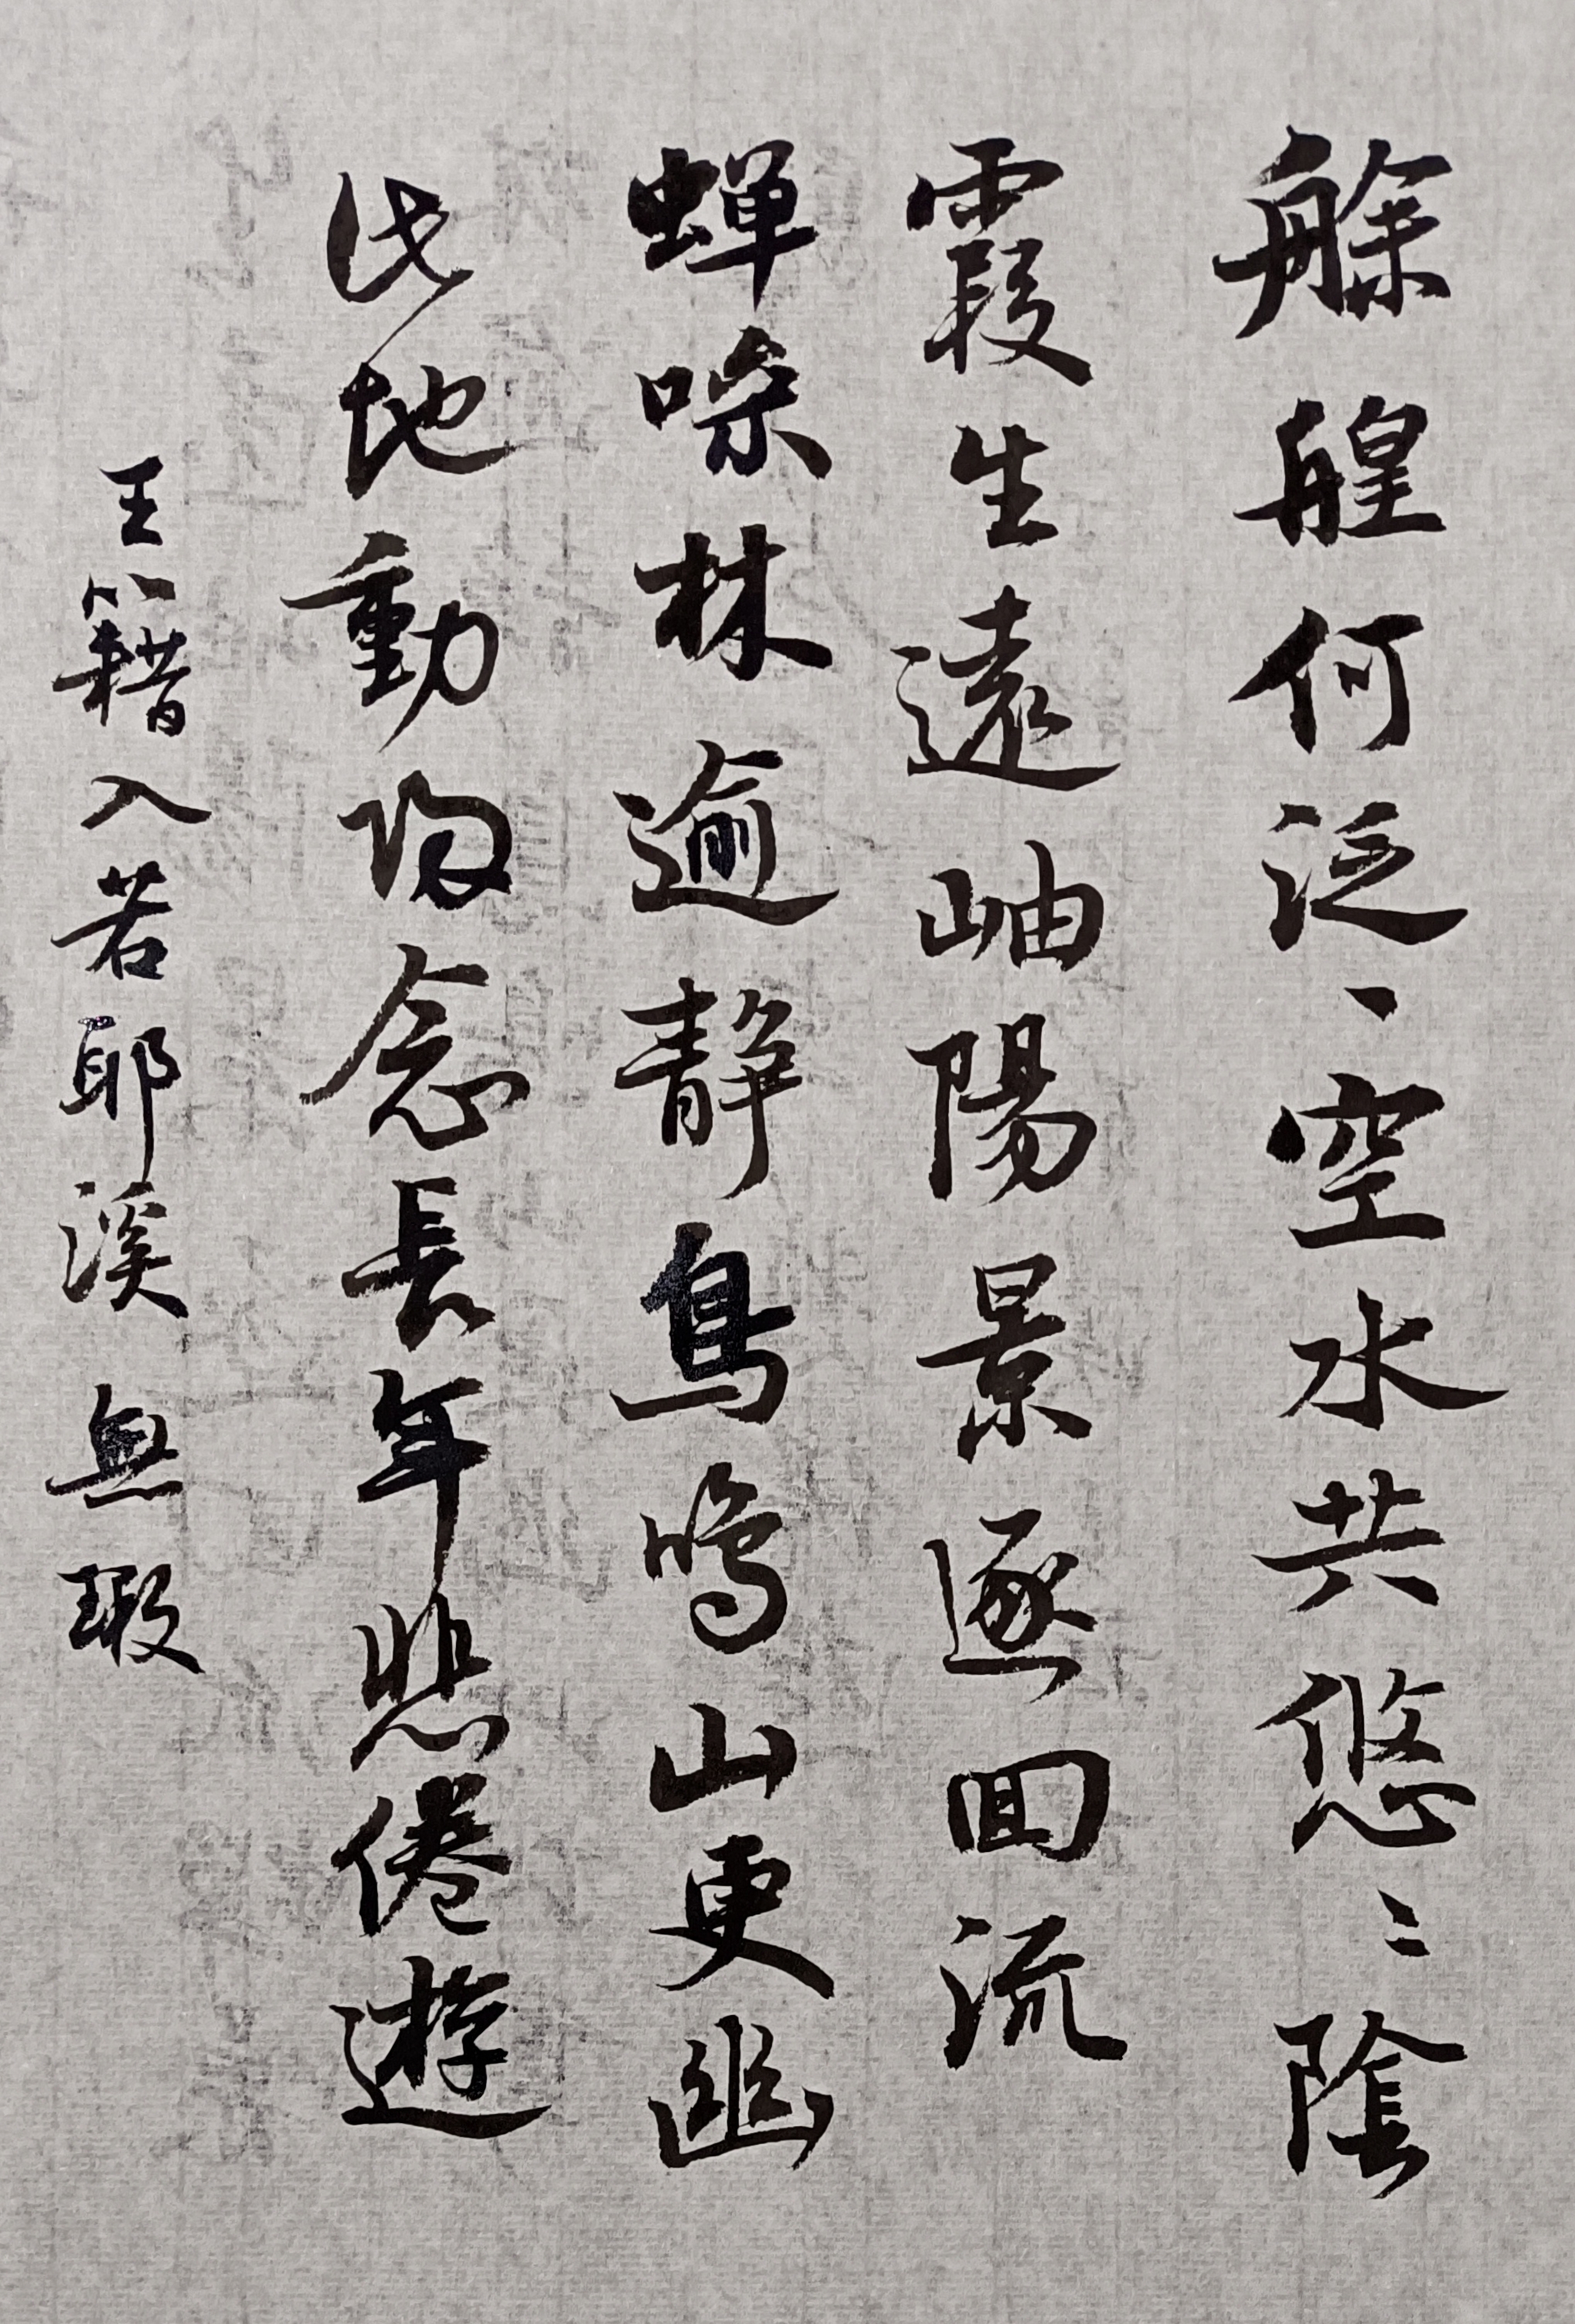 艅艎何泛、空水共悠〻陰
霞生遠岫陽景逐回流
蝉噪林逾静鳥鳴山更幽
此地動歸念長年悲倦遊
王籍入若耶溪 無瑕